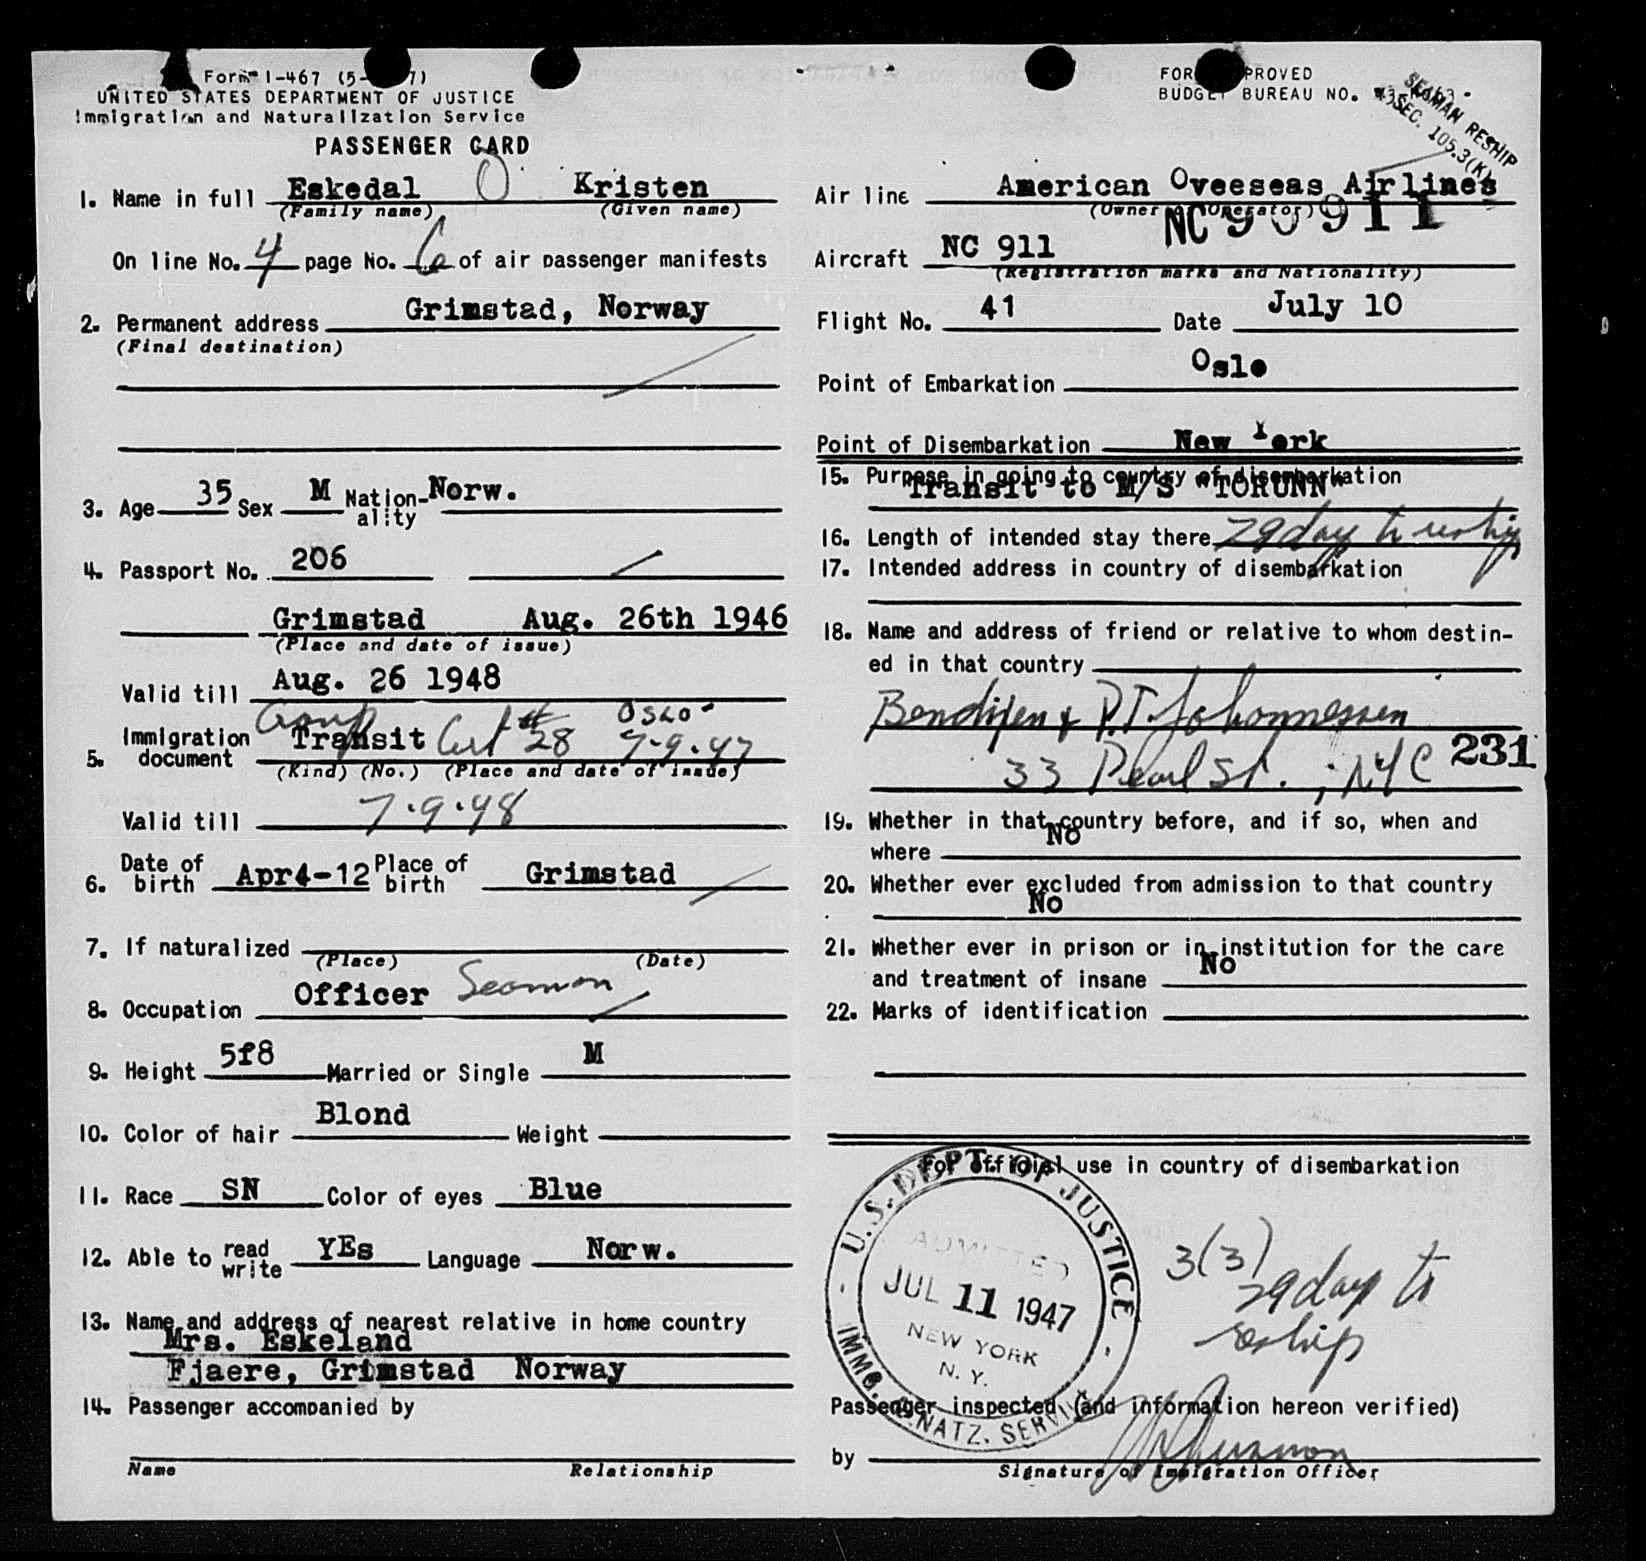 Form I-467 (5- 7)
UNITED STATES DEPARTMENT OF JUSTICE
Immigration and Naturalization Service
PASSENGER CARD
1. Name in full Eskedal O Kristen
(Family name) (Given name)
On line No. 4 page No. 6 of air passenger manifests
2. Permanent address Grimstad, Norway
(Final destination)
3. Age 35 Sex M Nation-ality Norw.
4. Passport No. 206
Grimstad Aug. 26th 1946
(Place and date of issue)
Valid till Aug. 26 1948
Group OSLO
5. Immigration document Transit Cert # 28 7-9-47
(Kind) (No.) (Place and date of issue)
Valid till 7.9.48
6. Date of birth Apr4-12 Place of birth Grimstad
7. If naturalized
(Place) (Date)
8. Occupation Officer Seaman
9. Height 5f8 Married or Single M
10. Color of hair Blond Weight
11. Race SN Color of eyes Blue
12. Able to read write YEs Language Norw.
13. Name and address of nearest relative in home country
Mrs. Eskeland
Fjaere, Grimstad Norway
14. Passenger accompanied by
Name Relationship
FOR PROVED
BUDGET BUREAU NO.
SEAMAN RESHIP
SEC. 105.3(K)
Air line American Oveeseas Airlines
(Owner or Operator)
NC 90911
Aircraft NC 911
(Registration marks and Nationality)
Flight No. 41 Date July 10
Point of Embarkation Oslo
Point of Disembarkation New York
15. Purpose in going to country of disembarkation
Transit to M/S "TORUNN"
16. Length of intended stay there 29 day to reship
17. Intended address in country of disembarkation
18. Name and address of friend or relative to whom destin-
ed in that country
Bendixen & P.T. Johannessen
33 Pearl St. ; NYC 231
19. Whether in that country before, and if so, when and
where No
20. Whether ever excluded from admission to that country
No
21. Whether ever in prison or in institution for the care
and treatment of insane No
22. Marks of identification
For official use in country of disembarkation
U.S. DEPT. OF JUSTICE
ADMITTED
JUL 11 1947
NEW YORK
N. Y.
IMMG. & NATZ. SERVICE
3(3)
29 day to
reship
Passenger inspected (and information hereon verified)
by
Signature of Immigration Officer